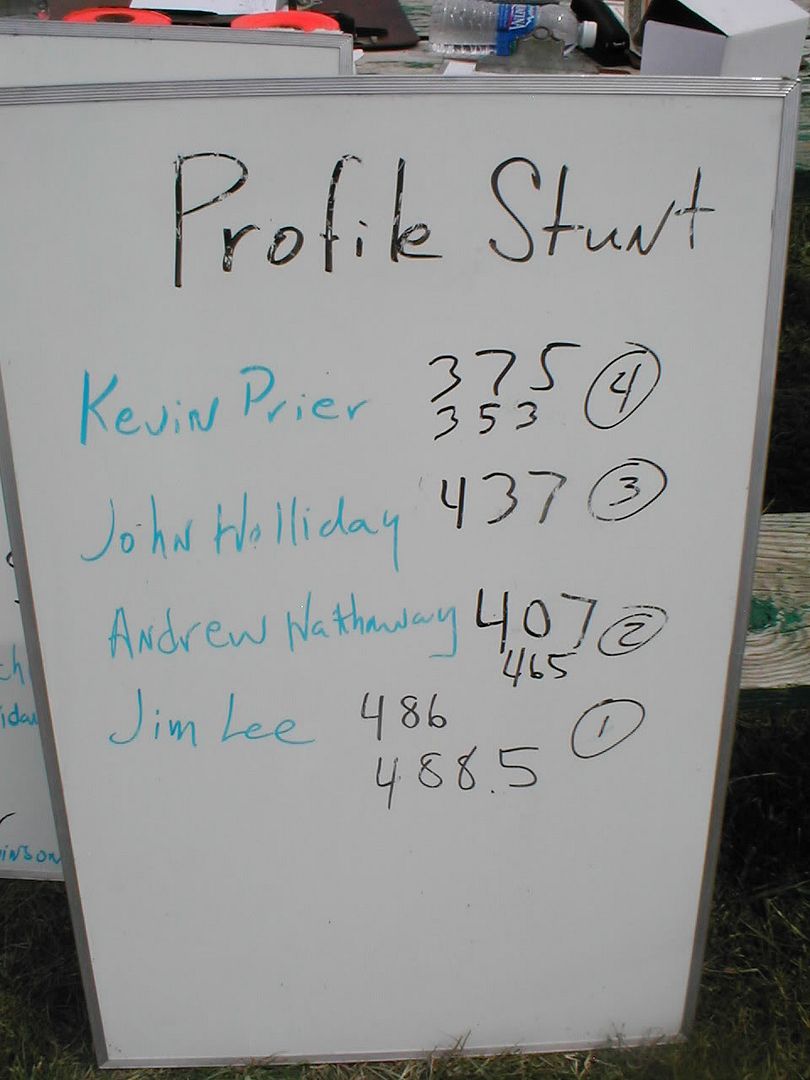 Profile Stunt
Kevin Prier 375 4
353
John Holliday 437 3
Andrew Hathaway 407 2
465
Jim Lee 486 1
488.5